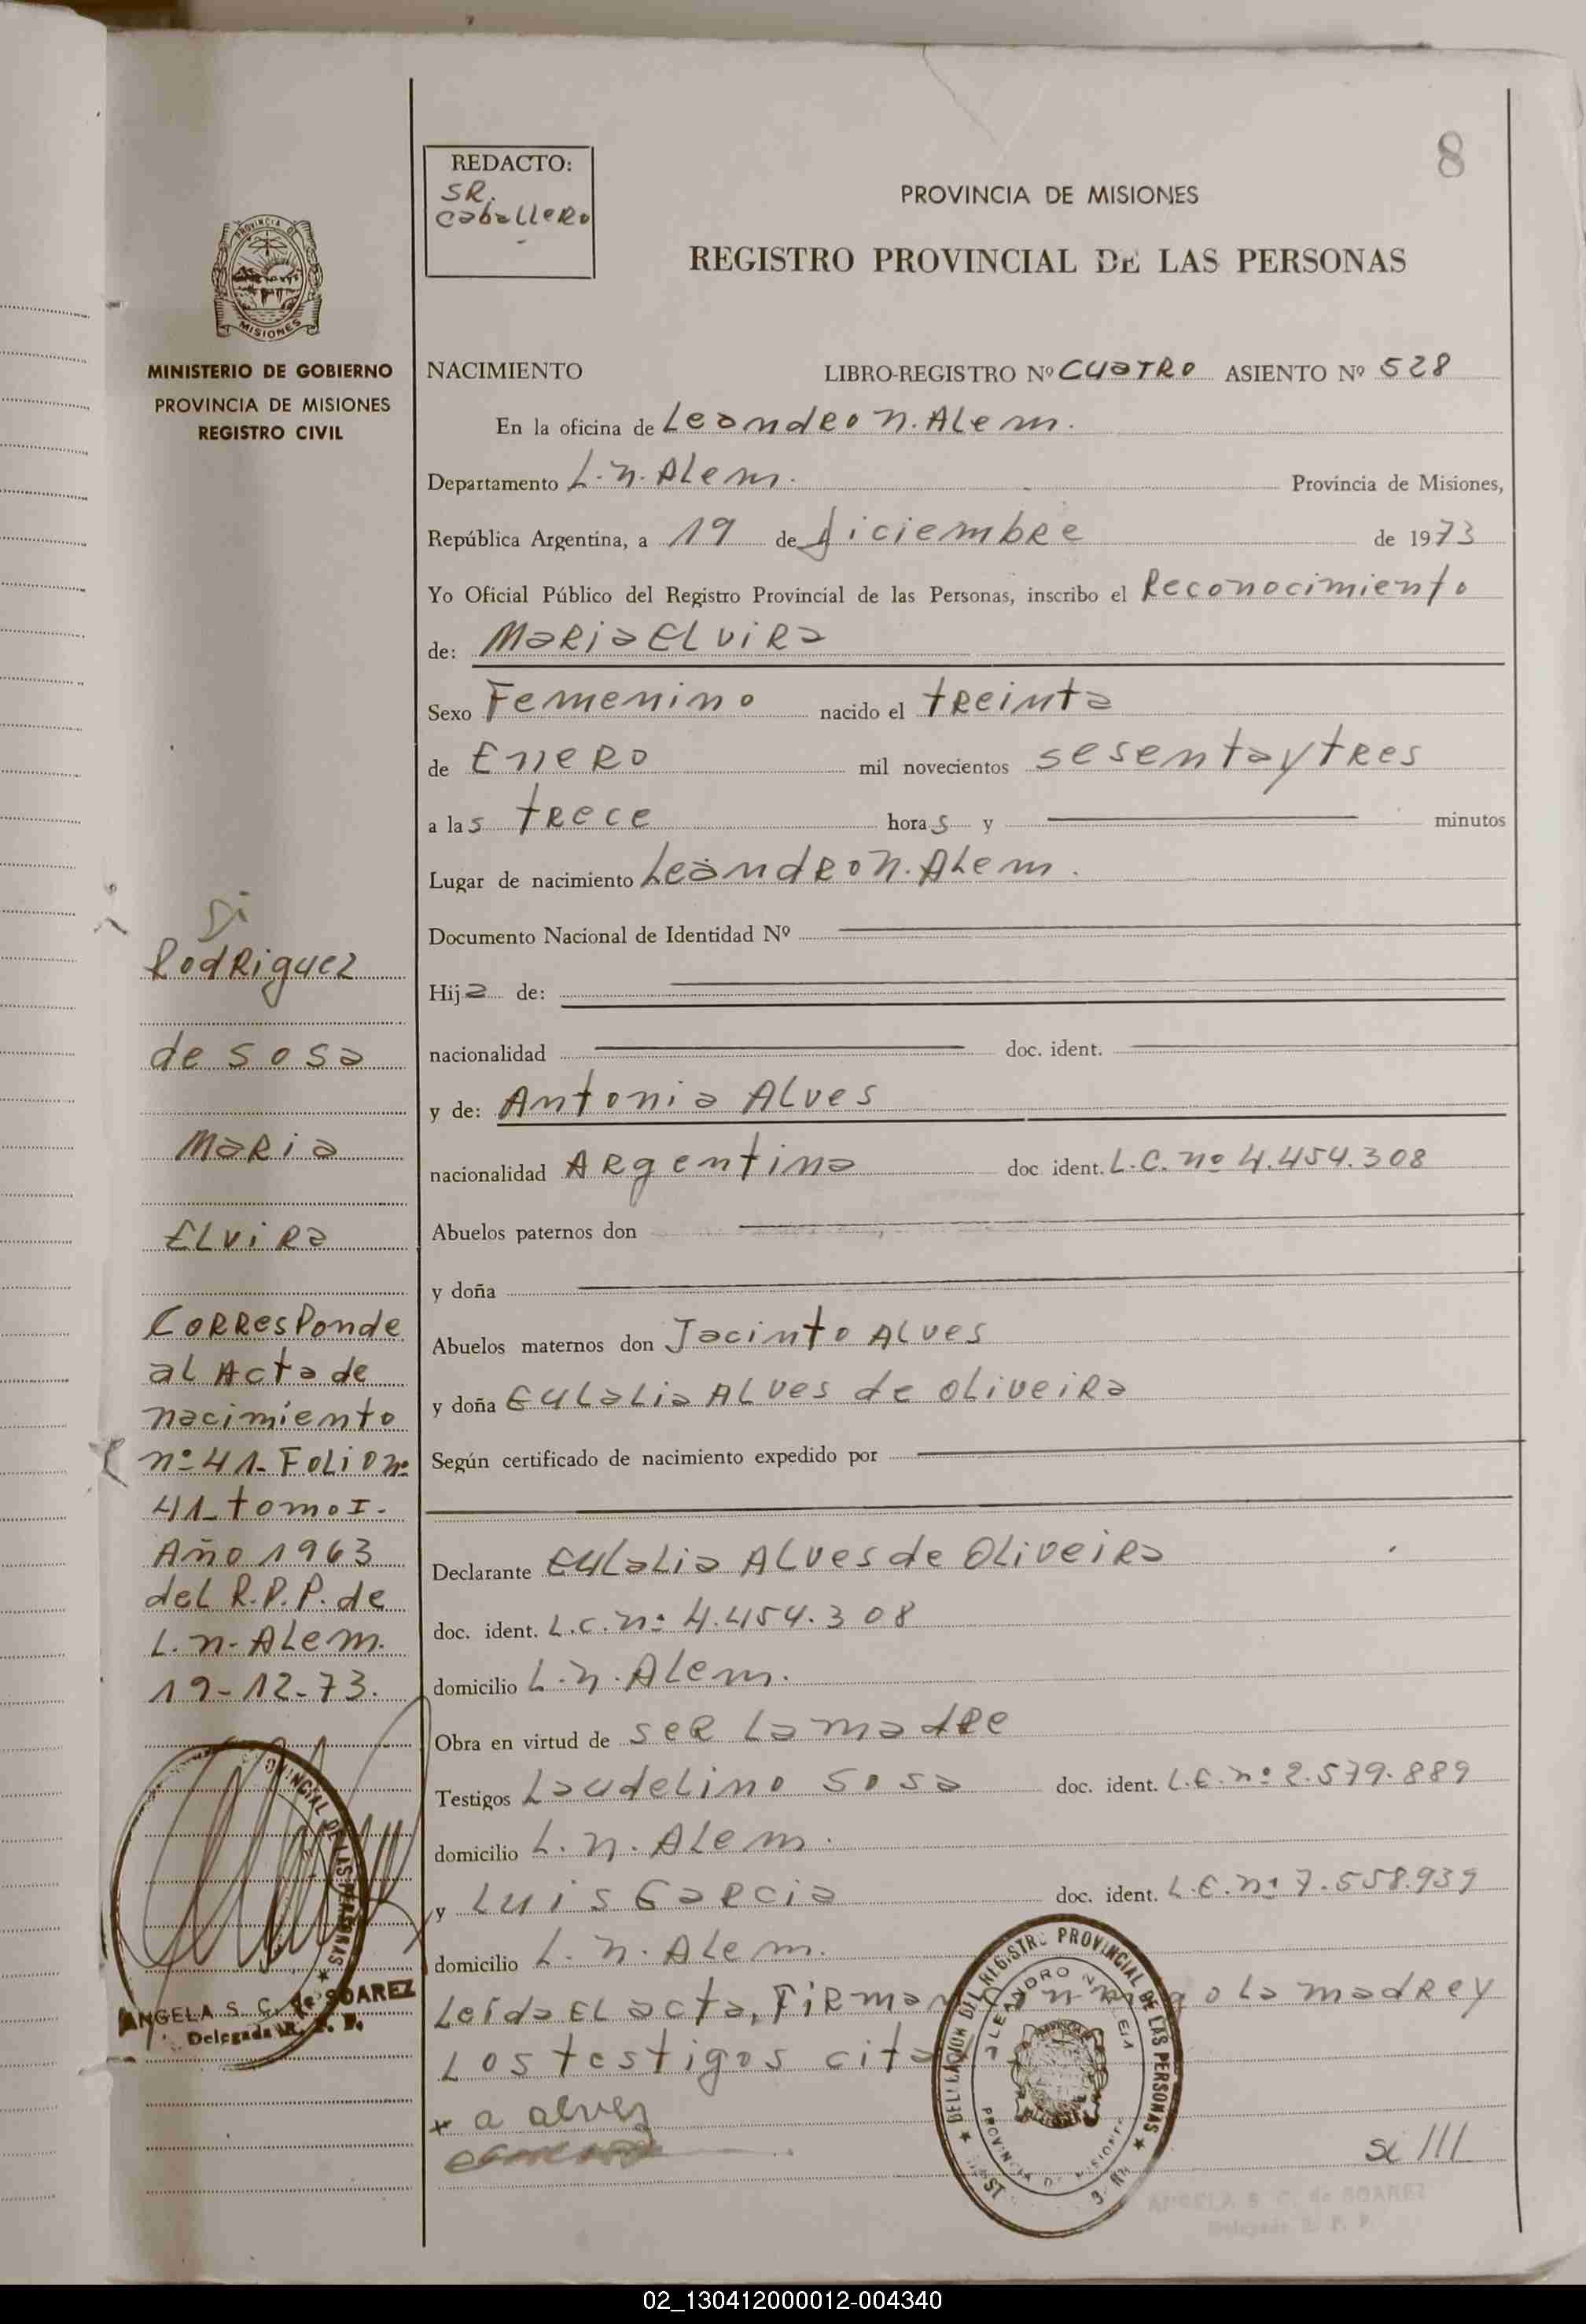 8
REDACTO:
SR.
Caballero
PROVINCIA DE MISIONES
REGISTRO PROVINCIAL DE LAS PERSONAS
PROVINCIA DE
MISIONES
MINISTERIO DE GOBIERNO
PROVINCIA DE MISIONES
REGISTRO CIVIL
NACIMIENTO LIBRO-REGISTRO Nº CUATRO ASIENTO Nº 528
En la oficina de Leandro N. Alem.
Departamento L. N. Alem. Provincia de Misiones,
República Argentina, a 19 de diciembre de 1973
Yo Oficial Público del Registro Provincial de las Personas, inscribo el Reconocimiento
de: Maria Elvira
Sexo Femenino nacido el treinta
de Enero mil novecientos sesentaytres
a las trece horas y minutos
Lugar de nacimiento Leandro N. Alem.
Documento Nacional de Identidad Nº
Hija de:
nacionalidad doc. ident.
y de: Antonia Alves
nacionalidad Argentina doc ident. L.C. nº 4.454.308
Abuelos paternos don
y doña
Abuelos maternos don Jacinto Alves
y doña Eulalia Alves de Oliveira
Según certificado de nacimiento expedido por
Declarante Eulalia Alves de Oliveira
doc. ident. L.C. nº 4.454.308
domicilio L. N. Alem.
Obra en virtud de ser la madre
Testigos Laudelino Sosa doc. ident. L.E. nº 2.579.889
domicilio L. N. Alem.
y Luis Garcia doc. ident. L.E. nº 7.558.939
domicilio L. N. Alem.
Leída el acta, Firman la madre y
Los testigos
x a alves
si III
Rodriguez
de Sosa
Maria
Elvira
Corresponde
al Acta de
nacimiento
nº 41- Folio nº
41- tomo I-
Año 1963
del R.P.P. de
L. N. Alem.
19-12-73.
ANGELA S. C. de SOAREZ
Delegada R. P. P.
DELEGACION DEL REGISTRO PROVINCIAL DE LAS PERSONAS
PROVINCIA DE MISIONES
ANGELA S. C. de SOAREZ
Delegada R. P. P.
02_130412000012-004340